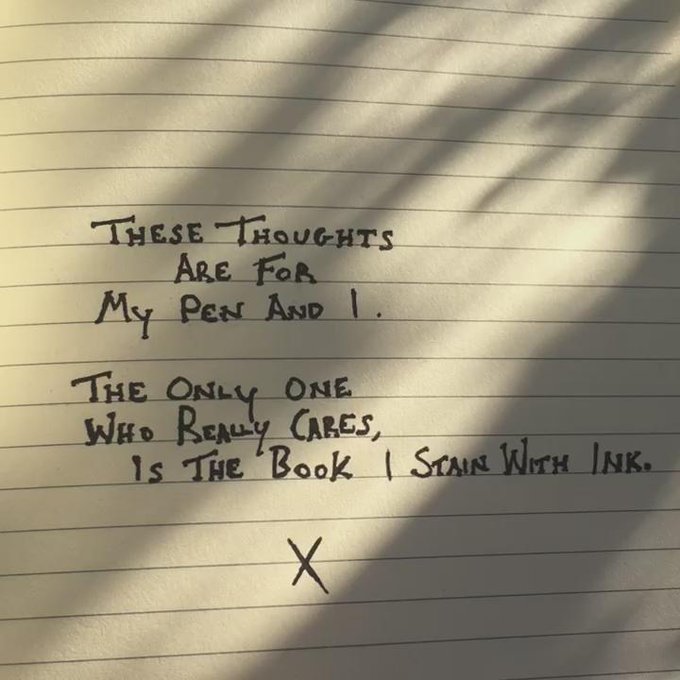 These Thoughts
Are For
My Pen And I.
The Only One
Who Really Cares,
Is The Book I Stain With Ink.
X